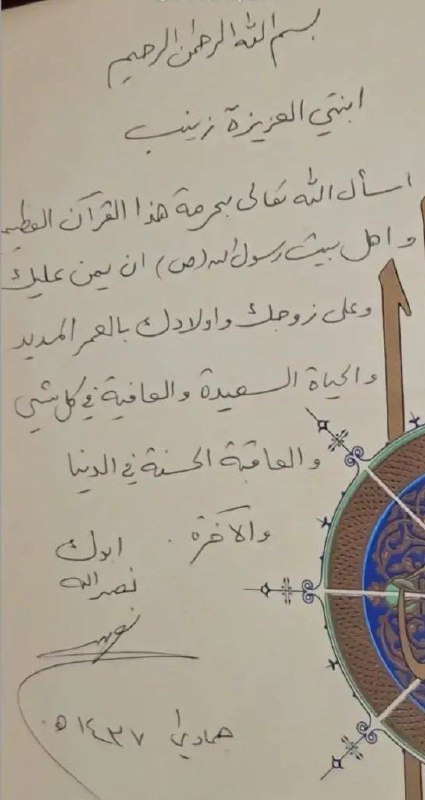 بسم الله الرحمن الرحيم
ابنتي العزيزة زينب
اسأل الله تعالى بحرمة هذا القرآن العظيم
واهل بيت رسول الله (ص) ان يمن عليك
وعلى زوجك واولادك بالعمر المديد
والحياة السعيدة والعافية في كل شي
والعاقبة الحسنة في الدنيا
والآخرة.
ابوك
نصر الله
١٤٣٧ ه